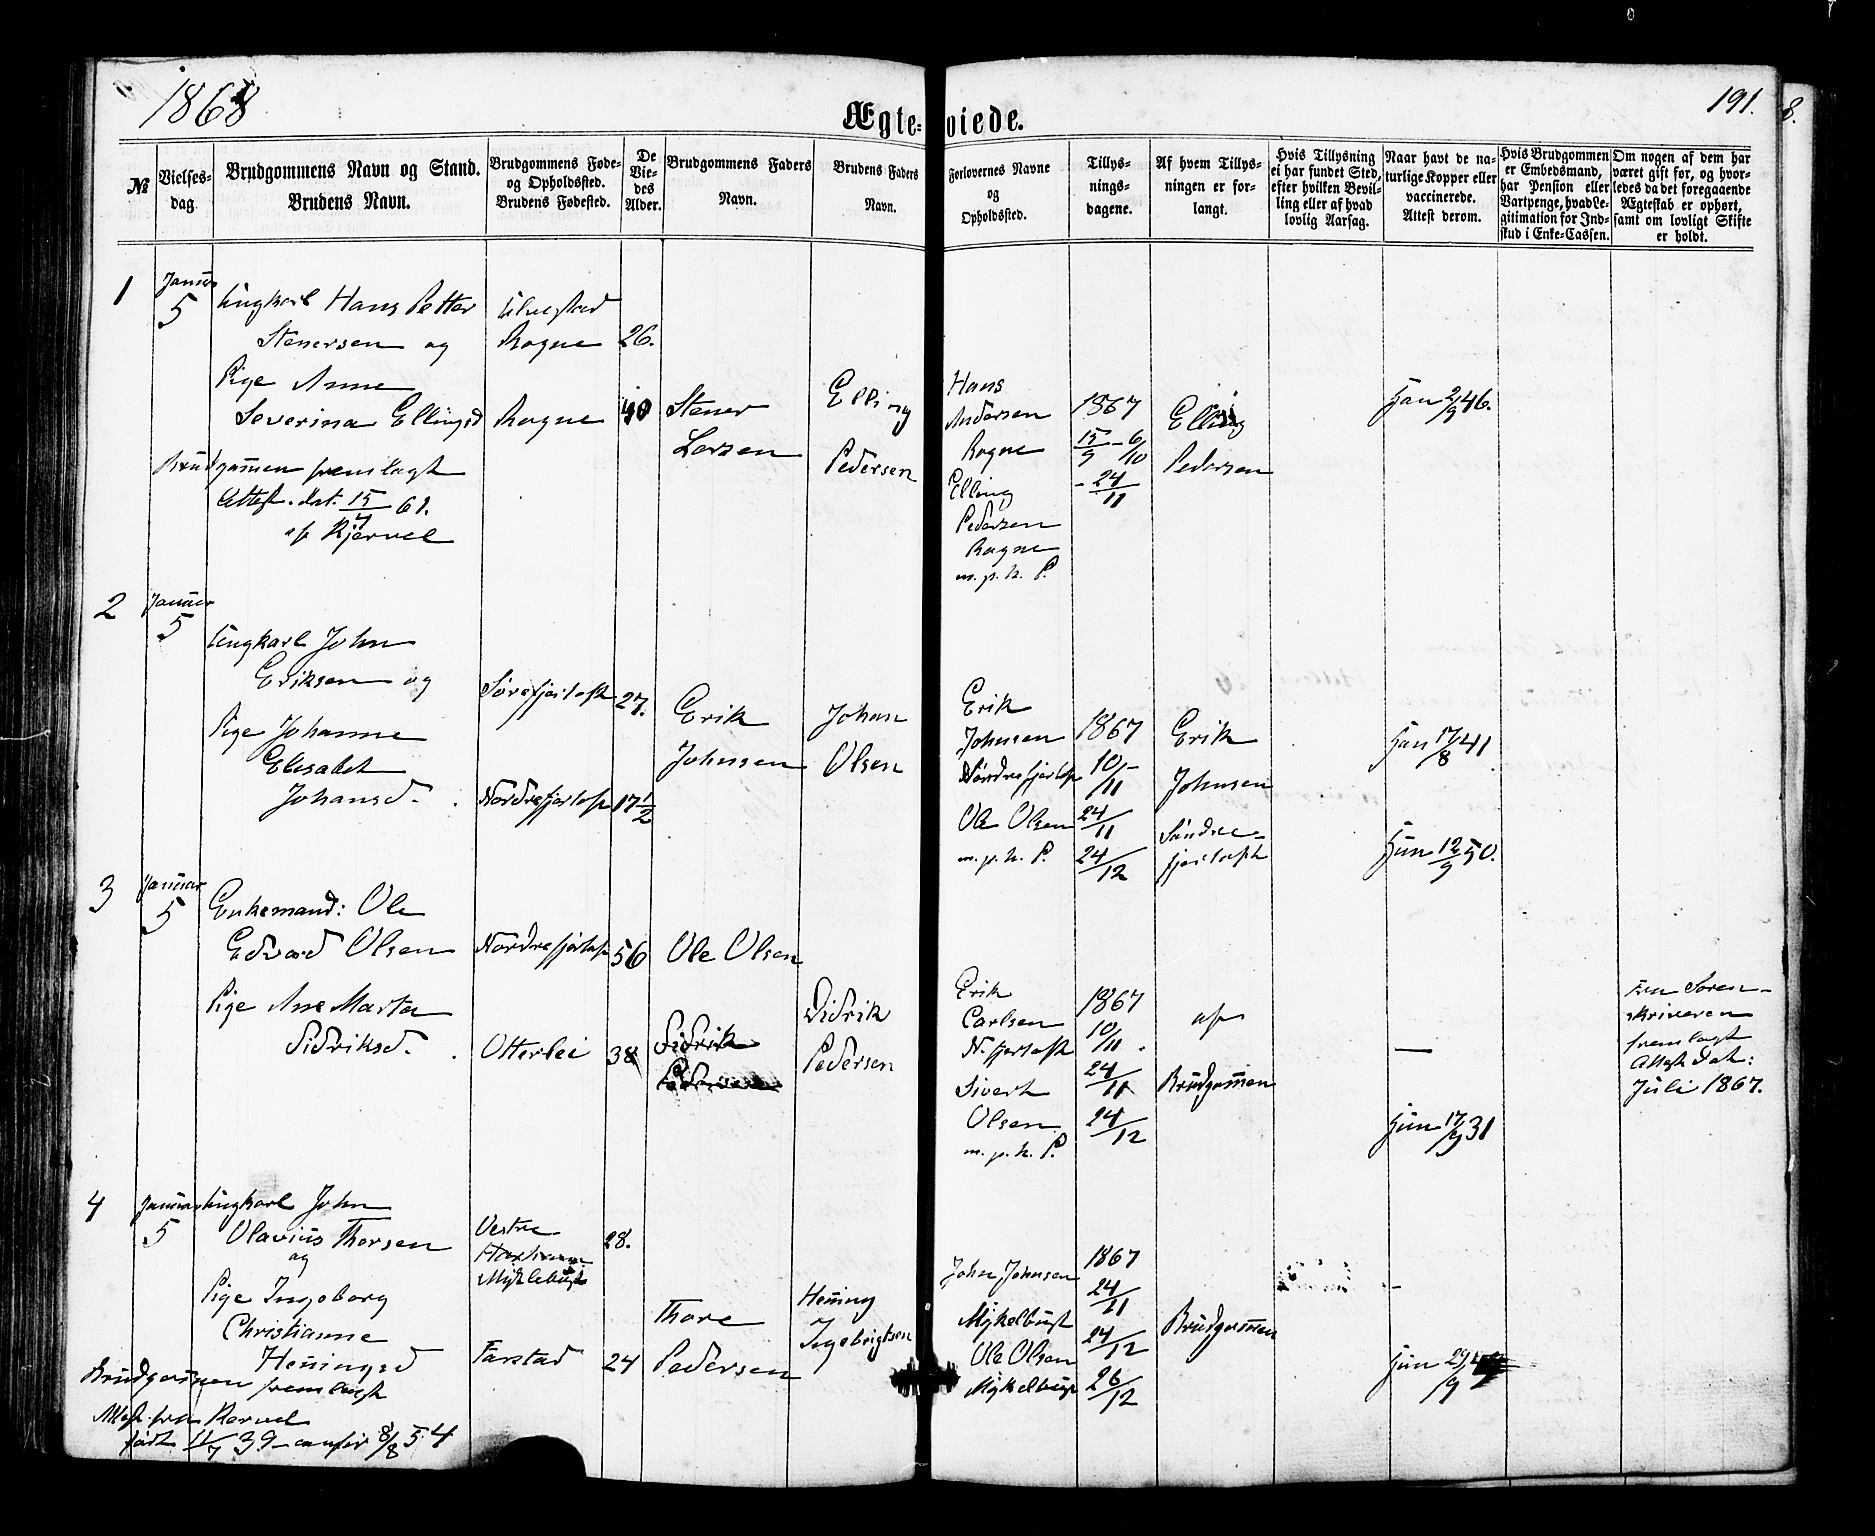 1868
191.
8.
Ægte-viede.
№
Vielses-
dag.
Brudgommens Navn og Stand.
Brudens Navn.
Brudgommens Føde-
og Opholdssted.
Brudens Fødested.
De
Vie-
des
Alder.
Brudgommens Faders
Navn.
Brudens Faders
Navn.
Forlovernes Navne
og
Opholdssted.
Tillys-
nings-
dagene.
Af hvem Tillys-
ningen er for-
langt.
Hvis Tillysning
ei har fundet Sted,
efter hvilken Bevil-
ling eller af hvad
lovlig Aarsag.
Naar havt de na-
turlige Kopper eller
vaccinerede.
Attest derom.
Hvis Brudgommen
er Embedsmand,
har Pension eller
Vartpenge, hvad Le-
gitimation for Ind-
skud i Enke-Cassen.
Om nogen af dem har
været gift før, og hvor-
ledes da det foregaaende
Ægteskab er ophørt,
samt om lovligt Skifte
er holdt.
1
Januar
5
Ungkarl Hans Petter
Stenersen og
Pige Anne
Severina Ellingsd
Brudgom̄en fremlagt
Attest. dat. 15/7 61.
af Kjervel
Ulvestad
Rogne
Rogne
26.
40
Stener
Larsen
Elling
Pedersen
Hans
Andersen
Rogne
Elling
Pedersen
Rogne
m. p. h. P.
1867
15/9 - 6/10
- 24/11
Elling
Pedersen
Han 2/9 46.
2
Januar
5
Ungkarl John
Eriksen og
Pige Johanne
Elisabet
Johansd.
Søre fjørtoft
Nordre fjørtoft
27.
17 1/2
Erik
Johnsen
Johan
Olsen
Erik
Johnsen
Nordre fjørtoft
Ole Olsen
m. p. h. P.
1867
10/11 -
24/11
24/12
Erik
Johnsen
Søndre-
fjørtoft
Han 17/8 41
Hun 12/9 50.
3
Januar
5
Enkemand: Ole
Edvard Olsen
Pige Ane Marta
Didriksd.
Nordre fjørtoft
Otterlei
56
38
Ole Olsen
Didrik
Didrik
Pedersen
Erik
Carlsen
N. fjørtoft
Sivert
Olsen
m. p. h. P.
1867
10/11.
24/11
24/12
af
Brudgom̄en
—
Hun 17/9 31
Soren-
skriveren
fremlagt
Attest dat:
Juli 1867.
4
Januar
5
Ungkarl John
Olavius Thorsen
og
Pige Ingeborg
Christianne
Hen̄ingsd
Brudgom̄en fremlagt
Attest fra Kervel
født 11/7 39 - confir 8/8 54
Vestre
Myklebust
Farstad
28.
24
Thore
Pedersen
Hen̄ing
Ingebrigtsen
John Johnsen
Mykelbust
Ole Olsen
Mykelbust
1867
24/11
24/12
26/12
Brudgom̄en
-
Hun 29/9